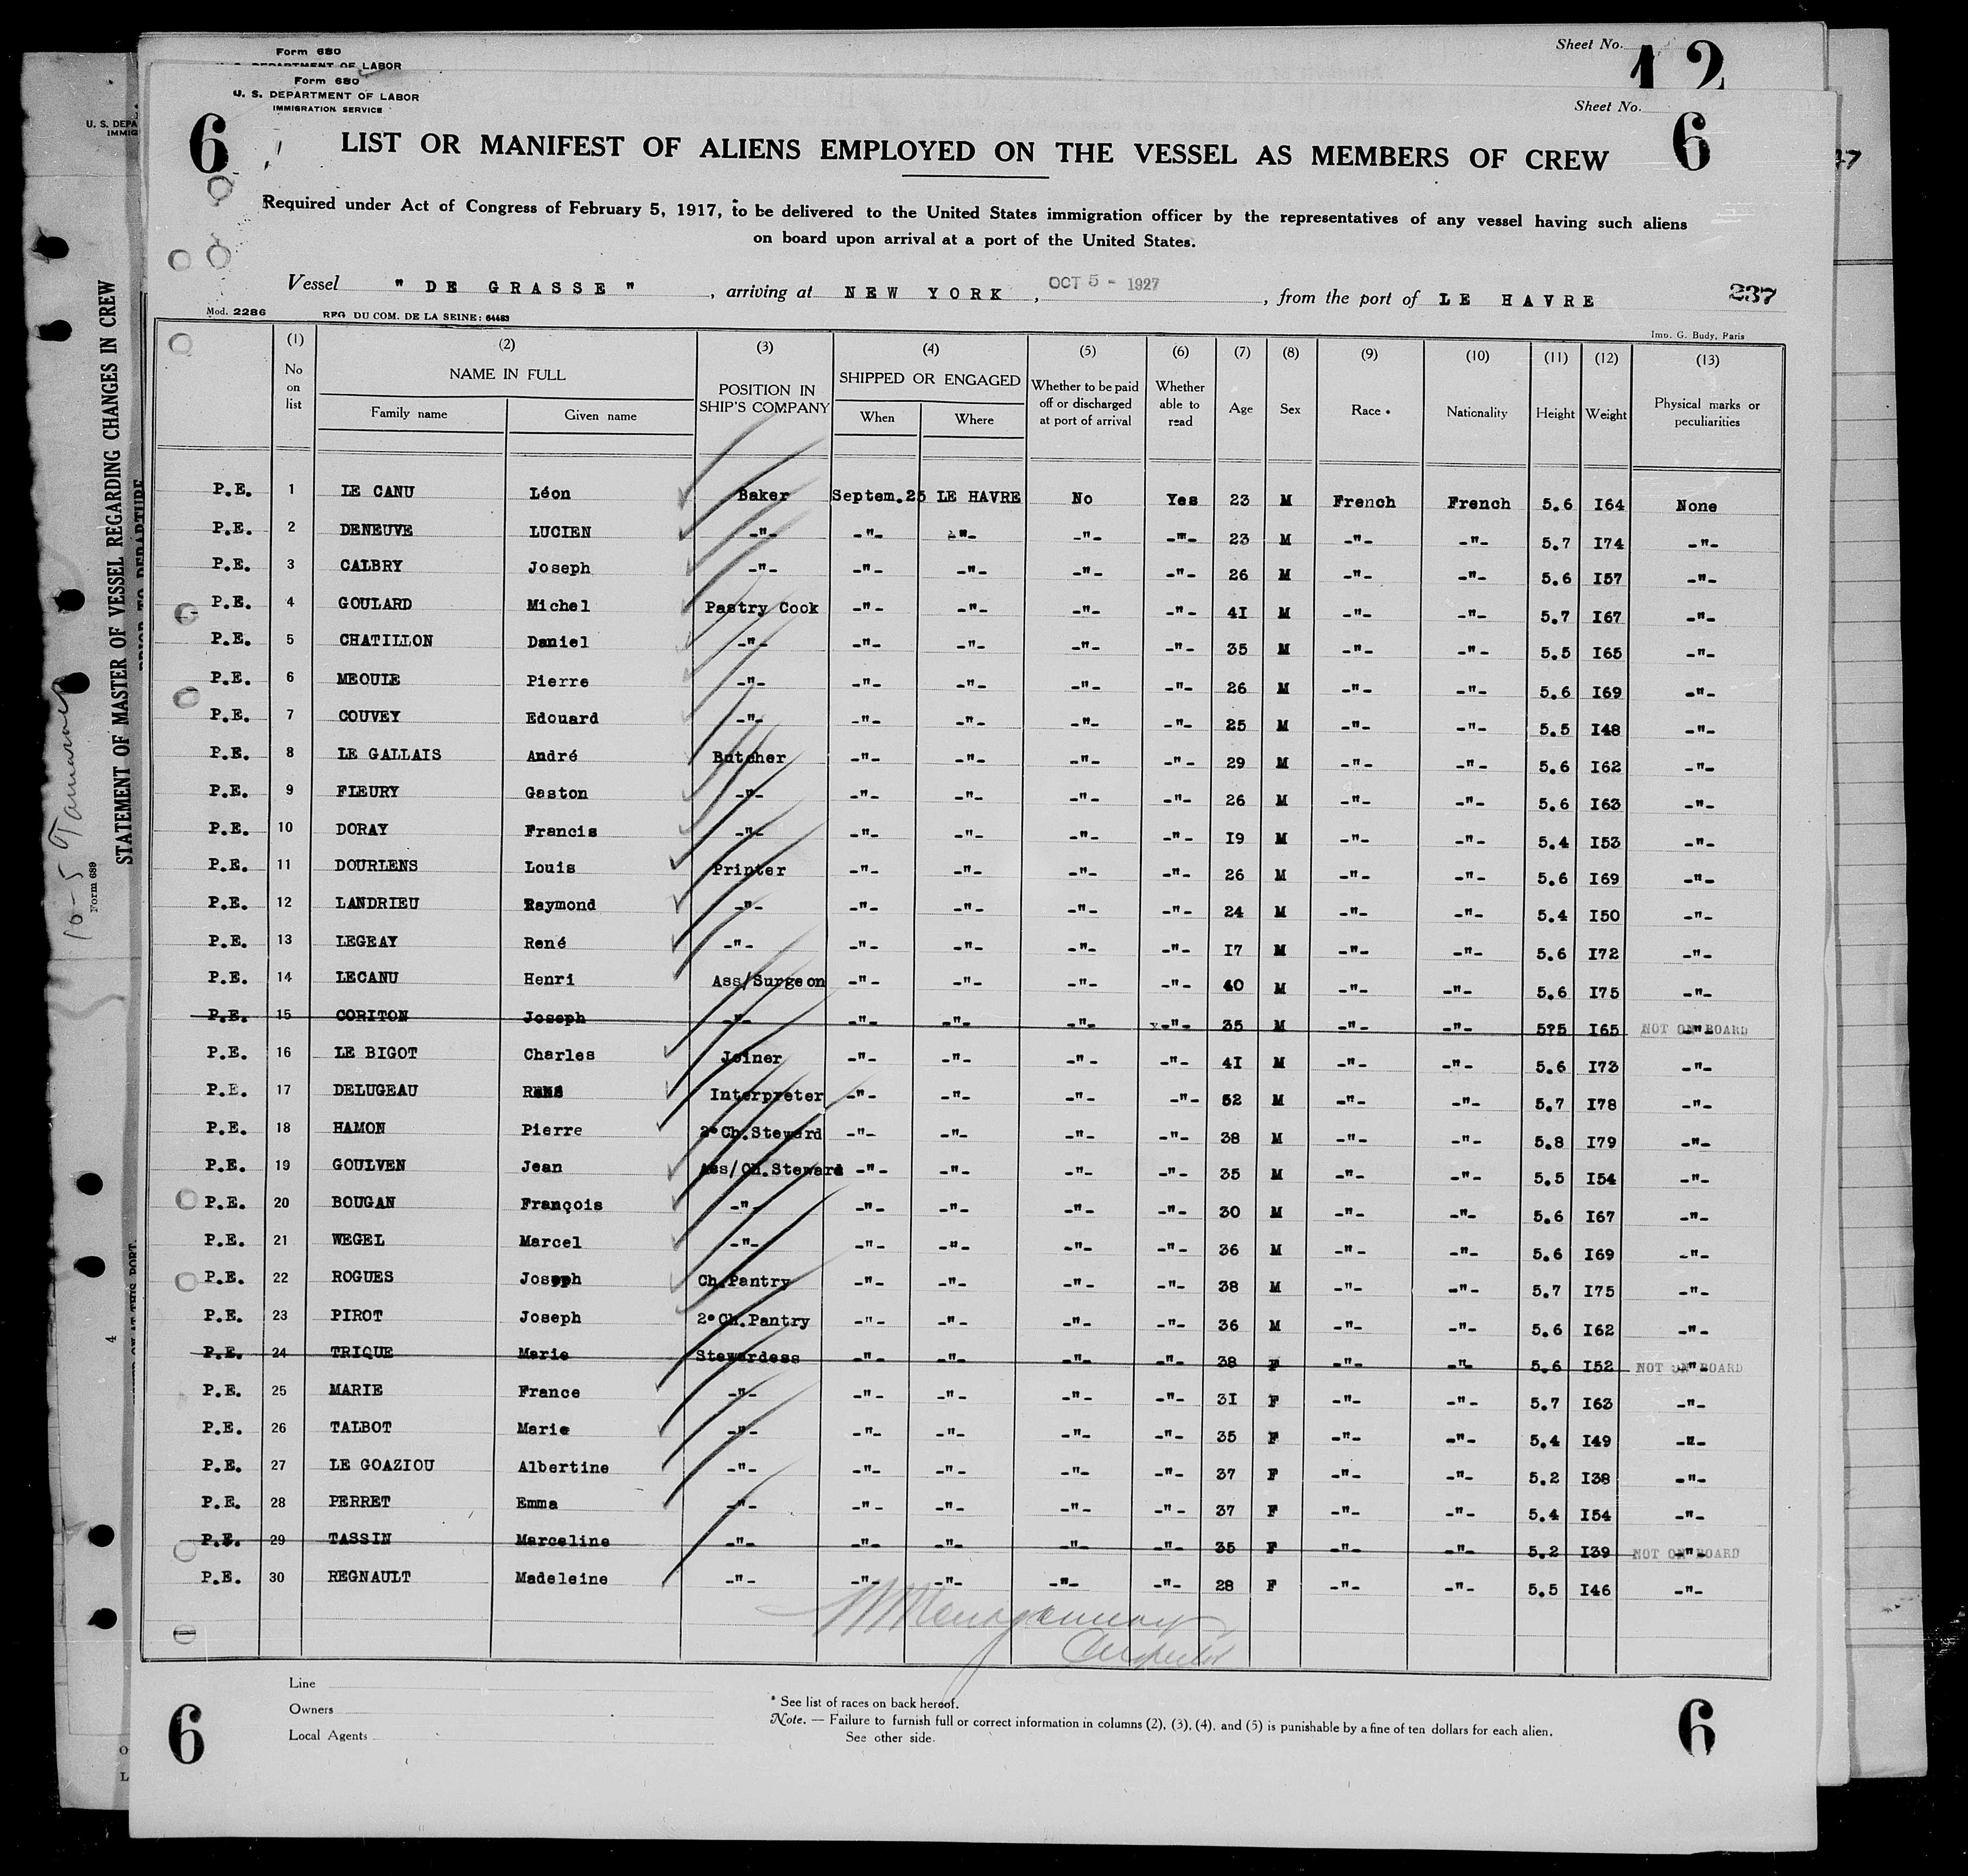 Form 680
U. S. DEPARTMENT OF LABOR
Sheet No.
12
Form 680
U. S. DEPARTMENT OF LABOR
IMMIGRATION SERVICE
Sheet No.
6 6
LIST OR MANIFEST OF ALIENS EMPLOYED ON THE VESSEL AS MEMBERS OF CREW
Required under Act of Congress of February 5, 1917, to be delivered to the United States immigration officer by the representatives of any vessel having such aliens
on board upon arrival at a port of the United States.
Vessel "DE GRASSE", arriving at NEW YORK, OCT 5 - 1927, from the port of LE HAVRE 237
Mod. 2286 REG DU COM. DE LA SEINE: 64483 Imp. G. Budy, Paris
(1) (2) (3) (4) (5) (6) (7) (8) (9) (10) (11) (12) (13)
No on list NAME IN FULL POSITION IN SHIP'S COMPANY SHIPPED OR ENGAGED Whether to be paid off or discharged at port of arrival Whether able to read Age Sex Race * Nationality Height Weight Physical marks or peculiarities
Family name Given name When Where
P.E. 1 LE CANU Léon Baker Septem.25 LE HAVRE No Yes 23 M French French 5.6 I64 None
P.E. 2 DENEUVE LUCIEN -"- -"- -"- -"- -"- 23 M -"- -"- 5.7 I74 -"-
P.E. 3 CALBRY Joseph -"- -"- -"- -"- -"- 26 M -"- -"- 5.6 I57 -"-
P.E. 4 GOULARD Michel Pastry Cook -"- -"- -"- -"- 4I M -"- -"- 5.7 I67 -"-
P.E. 5 CHATILLON Daniel -"- -"- -"- -"- -"- 35 M -"- -"- 5.5 I65 -"-
P.E. 6 MEOUIE Pierre -"- -"- -"- -"- -"- 26 M -"- -"- 5.6 I69 -"-
P.E. 7 COUVEY Edouard -"- -"- -"- -"- -"- 25 M -"- -"- 5.5 I48 -"-
P.E. 8 LE GALLAIS André Butcher -"- -"- -"- -"- 29 M -"- -"- 5.6 I62 -"-
P.E. 9 FLEURY Gaston -"- -"- -"- -"- -"- 26 M -"- -"- 5.6 I63 -"-
P.E. 10 DORAY Francis -"- -"- -"- -"- -"- I9 M -"- -"- 5.4 I53 -"-
P.E. 11 DOURLENS Louis Printer -"- -"- -"- -"- 26 M -"- -"- 5.6 I69 -"-
P.E. 12 LANDRIEU Raymond -"- -"- -"- -"- -"- 24 M -"- -"- 5.4 I50 -"-
P.E. 13 LEGEAY René -"- -"- -"- -"- -"- I7 M -"- -"- 5.6 I72 -"-
P.E. 14 LECANU Henri Ass/Surgeon -"- -"- -"- -"- 40 M -"- -"- 5.6 I75 -"-
P.E. 15 CORITON Joseph -"- -"- -"- -"- -"- 35 M -"- -"- 5?5 I65 -"- NOT ON BOARD
P.E. 16 LE BIGOT Charles Joiner -"- -"- -"- -"- 4I M -"- -"- 5.6 I73 -"-
P.E. 17 DELUGEAU René Interpreter -"- -"- -"- -"- 52 M -"- -"- 5.7 I78 -"-
P.E. 18 HAMON Pierre 2°Ch.Steward -"- -"- -"- -"- 38 M -"- -"- 5.8 I79 -"-
P.E. 19 GOULVEN Jean Ass/Ch.Steward -"- -"- -"- -"- 35 M -"- -"- 5.5 I54 -"-
P.E. 20 BOUGAN François -"- -"- -"- -"- -"- 30 M -"- -"- 5.6 I67 -"-
P.E. 21 WEGEL Marcel -"- -"- -"- -"- -"- 36 M -"- -"- 5.6 I69 -"-
P.E. 22 ROGUES Joseph Ch.Pantry -"- -"- -"- -"- 38 M -"- -"- 5.7 I75 -"-
P.E. 23 PIROT Joseph 2°Ch.Pantry -"- -"- -"- -"- 36 M -"- -"- 5.6 I62 -"-
P.E. 24 TRIQUE Marie Stewardess -"- -"- -"- -"- 38 F -"- -"- 5.6 I52 -"- NOT ON BOARD
P.E. 25 MARIE France -"- -"- -"- -"- -"- 3I F -"- -"- 5.7 I63 -"-
P.E. 26 TALBOT Marie -"- -"- -"- -"- -"- 35 F -"- -"- 5.4 I49 -"-
P.E. 27 LE GOAZIOU Albertine -"- -"- -"- -"- -"- 37 F -"- -"- 5.2 I38 -"-
P.E. 28 PERRET Emma -"- -"- -"- -"- -"- 37 F -"- -"- 5.4 I54 -"-
P.E. 29 TASSIN Marceline -"- -"- -"- -"- -"- 35 F -"- -"- 5.2 I39 -"- NOT ON BOARD
P.E. 30 REGNAULT Madeleine -"- -"- -"- -"- -"- 28 F -"- -"- 5.5 I46 -"-
Inspector
Line
Owners
Local Agents
* See list of races on back hereof.
Note. — Failure to furnish full or correct information in columns (2), (3), (4), and (5) is punishable by a fine of ten dollars for each alien.
See other side.
6 6
U. S. DEPA
IMMIG
STATEMENT OF MASTER OF VESSEL REGARDING CHANGES IN CREW
PRIOR TO DEPARTURE
Form 689
10-5
4